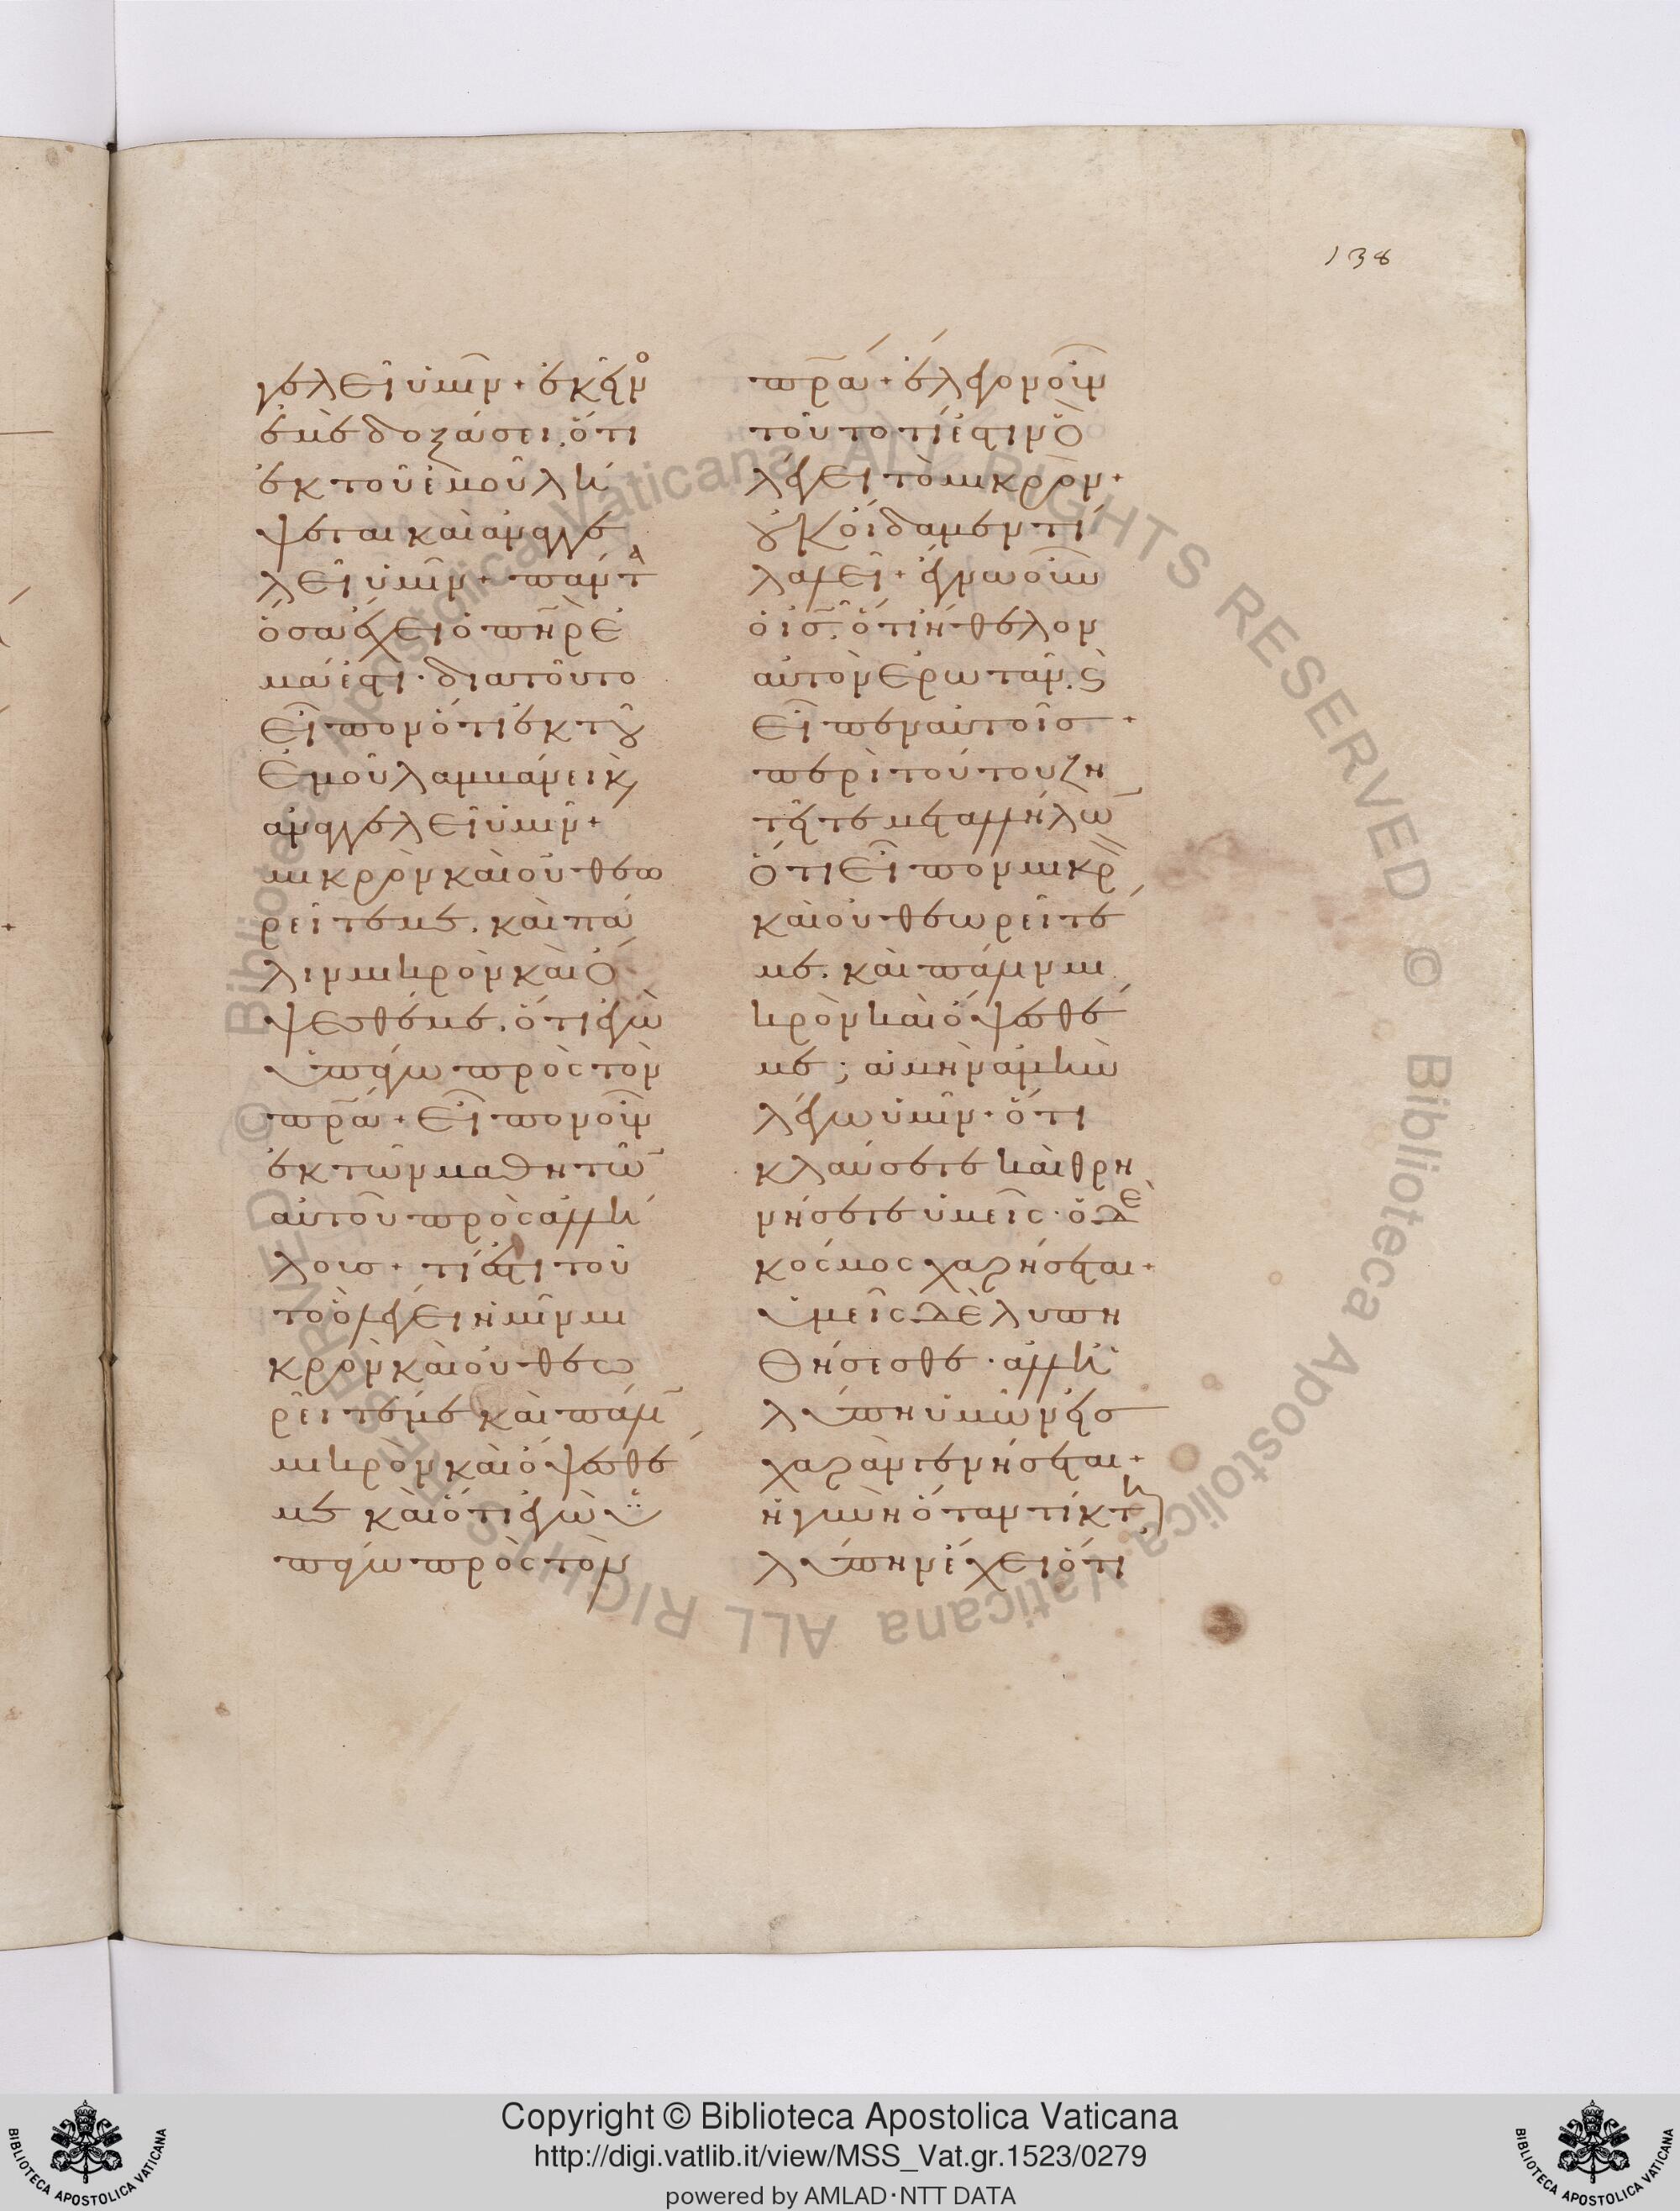 138
γελεῖ ὑμῖν + ἐκεῖνο
ἐμὲ δοξάσει. ὅτι
ἐκ τοῦ ἐμοῦ λή
ψεται καὶ ἀναγγε
λεῖ ὑμῖν + πάντα
ὅσα ἔχει ὁ πηρ ἐ
μά ἐστι · διατοῦτο
εἶπον ὅτι ἐκ τοῦ
ἐμοῦ λαμβάνει κ
αναγγελεῖ ὑμῖν +
μικρὸν καὶ οὐ θεω
ρεῖτε με. καὶ πά
λιν μικρὸν καὶ ὄ
ψεσθέ με. ὅτι ἐγὼ
ὑπάγω πρὸς τὸν
πρα + εἶπον οὖν
ἐκ τῶν μαθητῶ
αὐτοῦ πρὸς ἀλλή
λους + τί ἐστι τοῦ
το ὃ λέγει ἡμῖν μι
κρὸν καὶ οὐ θεω
ρεῖτέ με καὶ πάλιν
μικρὸν καὶ ὄψεσθέ
με καὶ ὅτι ἐγὼ ὑ
πάγω πρὸς τὸν
πρα + ἔλεγον οὖν
τοῦτο τί ἐστιν ὃ
λέγει τὸ μικρὸν +
οὐκ οἴδαμεν τί
λαλεῖ + ἔγνω οὖν
ὁ ισ. ὅτι ἤθελον
αὐτὸν ἐρωτᾶν. ϛ
εἶπεν αὐτοῖσ +
περὶ τούτου ζη
τεῖτε μετ αλλήλω
ὅτι εἶπον μικρ
καὶ οὐ θεωρεῖτέ
με. καὶ πάλιν μι
κρὸν καὶ ὄψεσθέ
με; ἀμὴν ἀμὴν
λέγω ὑμῖν + ὅτι
κλαύσετε καὶ θρη
νήσετε ὑμεῖς · ὁ δὲ
κόσμος χαρήσεται +
ὑμεῖς δὲ λυπη
θήσεσθε · ἀλλ ἡ
λύπη ὑμῶν εἰσ
χαρὰν γενήσεται +
ἡ γυνὴ ὅταν τίκτη
λύπην ἔχει ὅτι
© Biblioteca Apostolica Vaticana ALL RIGHTS RESERVED © Biblioteca Apostolica Vaticana ALL RIGHTS RESERVED
BIBLIOTECA APOSTOLICA VATICANA
Copyright © Biblioteca Apostolica Vaticana
http://digi.vatlib.it/view/MSS_Vat.gr.1523/0279
powered by AMLAD・NTT DATA
BIBLIOTECA APOSTOLICA VATICANA